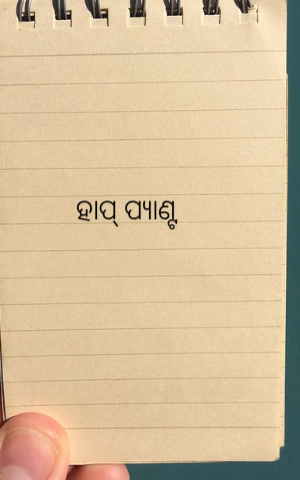 ହାପ୍ ପ୍ୟାଣ୍ଟ